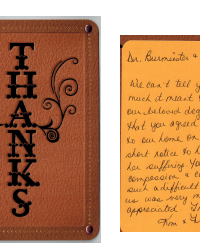 THANKS
Dr. Burmeister &
We can't tell y
much it meant
our beloved dog
that you agreed
to our home on
short notice to h
her suffering. Yo
compassion & c
such a difficult
us was very m
appreciated.
Tom &